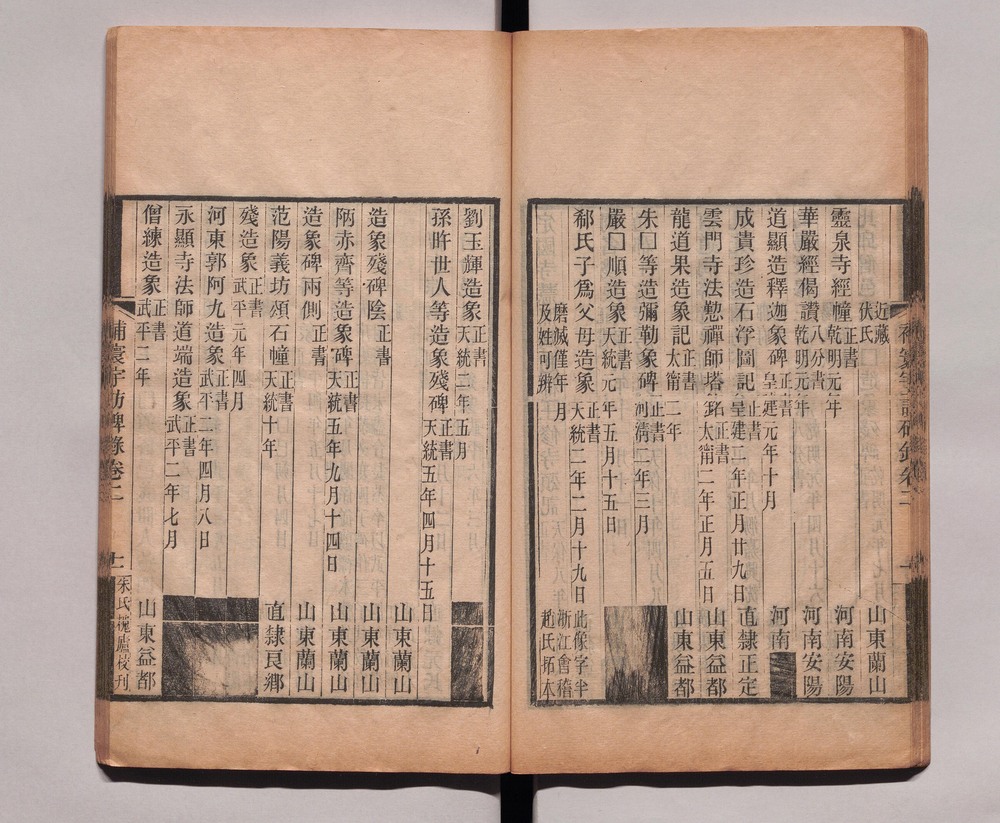 近藏 伏氏 山東蘭山
靈泉寺經幢 正書 乾明元年 河南安陽
華嚴經偈讚 八分書 乾明元年 河南安陽
道顯造釋迦象碑 正書 皇建元年十月 河南
成貴珍造石浮圖記 皇建二年正月廿九日 直隸正定
雲門寺法懃禪師塔銘 正書 太甯二年正月五日 山東益都
龍道果造象記 正書 太甯二年 山東益都
朱□等造彌勒象碑 正書 河淸二年三月
嚴□順造象 正書 天統元年五月十五日
郗氏子爲父母造象 正書 大統二年二月十九日 此像字半
磨滅僅年月 浙江會稽
及姓可辨 趙氏拓本
劉玉輝造象 正書 天統二年五月
孫旿世人等造象殘碑 正書 天統五年四月十五日
山東蘭山
造象殘碑陰 正書 山東蘭山
陃赤齊等造象碑 正書 天統五年九月十四日 山東蘭山
造象碑兩側 正書 山東蘭山
范陽義坊頌石幢 正書 天統十年 直隸良鄉
殘造象 正書 武平元年四月
河東郭阿九造象 正書 武平二年四月八日
永顯寺法師道端造象 正書 武平二年七月
僧練造象 正書 武平二年 山東益都
補寰宇訪碑錄卷二 十一 朱氏槐廬校刊